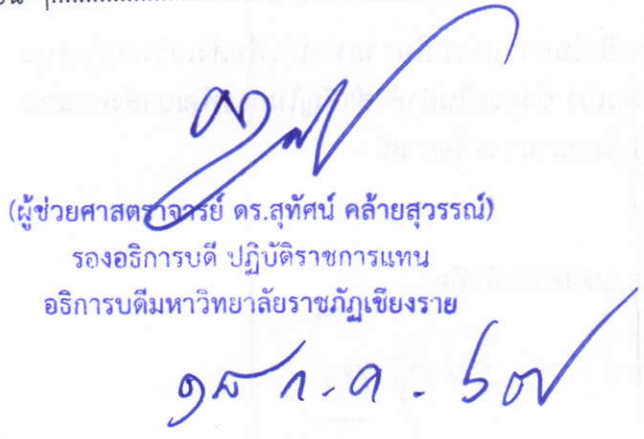 (ผู้ช่วยศาสตราจารย์ ดร.สุทัศน์ คล้ายสุวรรณ์)
รองอธิการบดี ปฏิบัติราชการแทน
อธิการบดีมหาวิทยาลัยราชภัฏเชียงราย
ก.ค. ๖๗